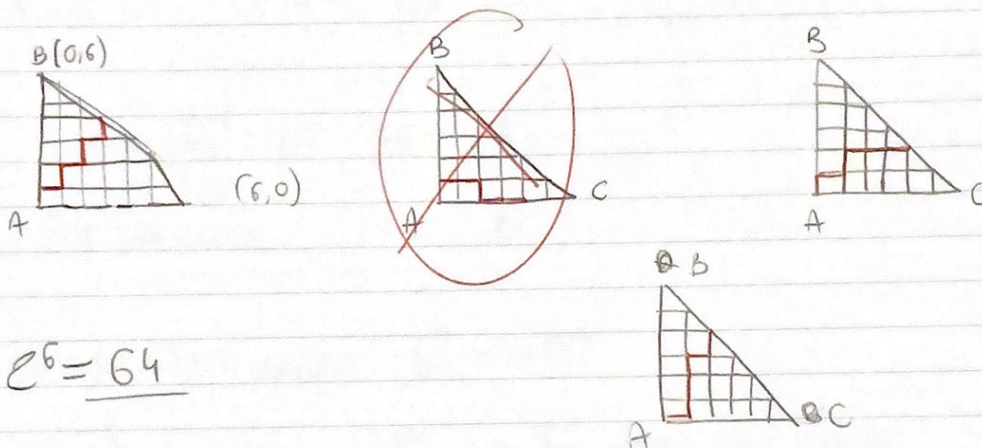 B(0,6)
A
(6,0)
B
A
C
B
A
C
B
A
C
2^6 = 64